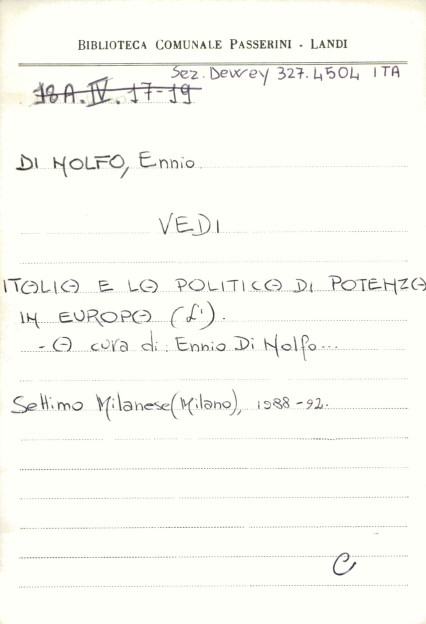 BIBLIOTECA COMUNALE PASSERINI - LANDI
Sez. Dewey 327.4504 ITA
18A.IV.17-19
DI NOLFO, Ennio
VEDI
ITALIA E LA POLITICA DI POTENZA
IN EUROPA (L').
- A cura di: Ennio Di Nolfo...
Settimo Milanese (Milano), 1988-92.
C